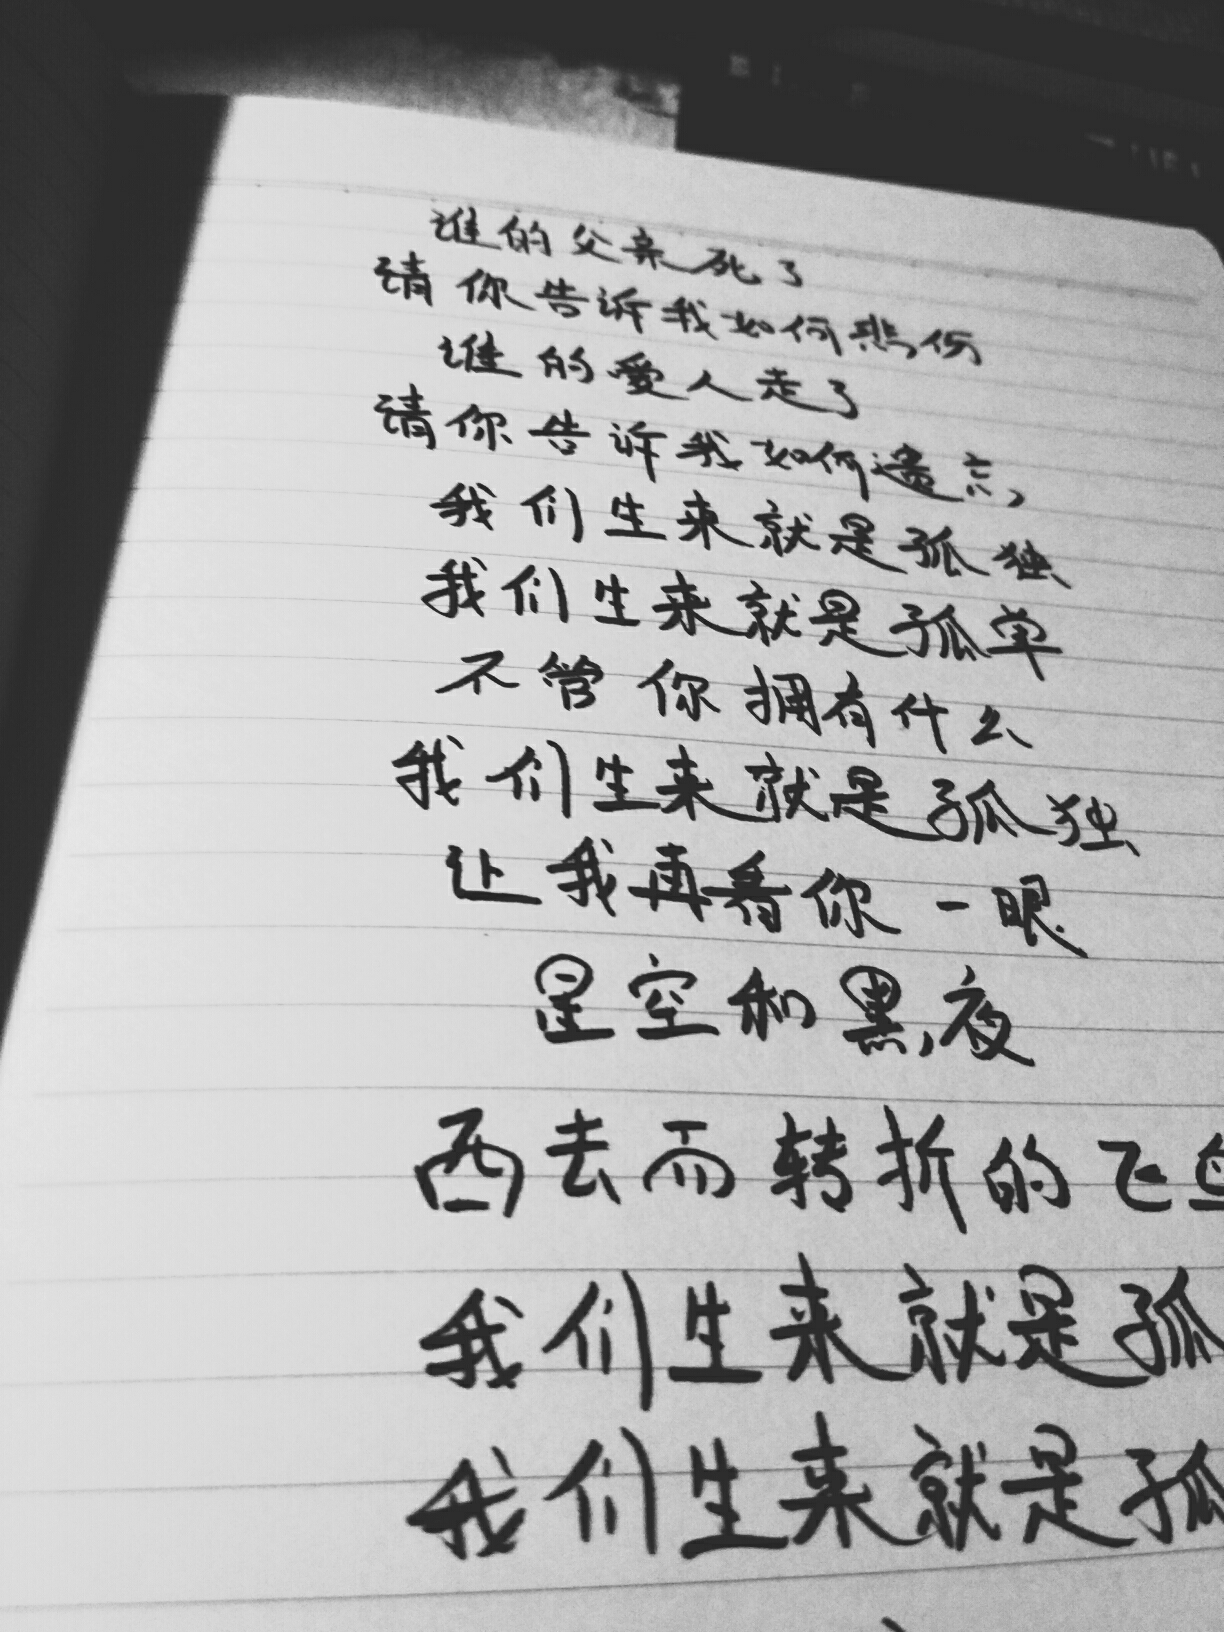 谁的父亲死了
请你告诉我如何悲伤
谁的爱人走了
请你告诉我如何遗忘,
我们生来就是孤独
我们生来就是孤单
不管你拥有什么
我们生来就是孤独
让我再看你一眼
星空和黑夜
西去而转折的飞鸟
我们生来就是孤
我们生来就是孤